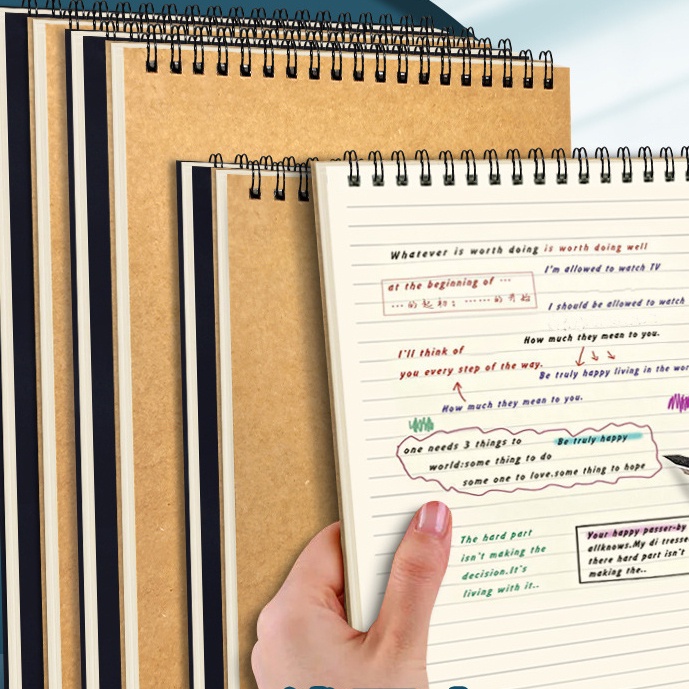 Whatever is worth doing is worth doing well
I'm allowed to watch TV
at the beginning of ...
... 的起初; ...... 的开始
I should be allowed to watch
How much they mean to you.
I'll think of
you every step of the way.
Be truly happy living in the wor
How much they mean to you.
one needs 3 things to Be truly happy
world:some thing to do
some one to love.some thing to hope
The hard part
isn't making the
decision.It's
living with it..
Your happy passer-by
allknows.My di tresse
there hard part isn't
making the..